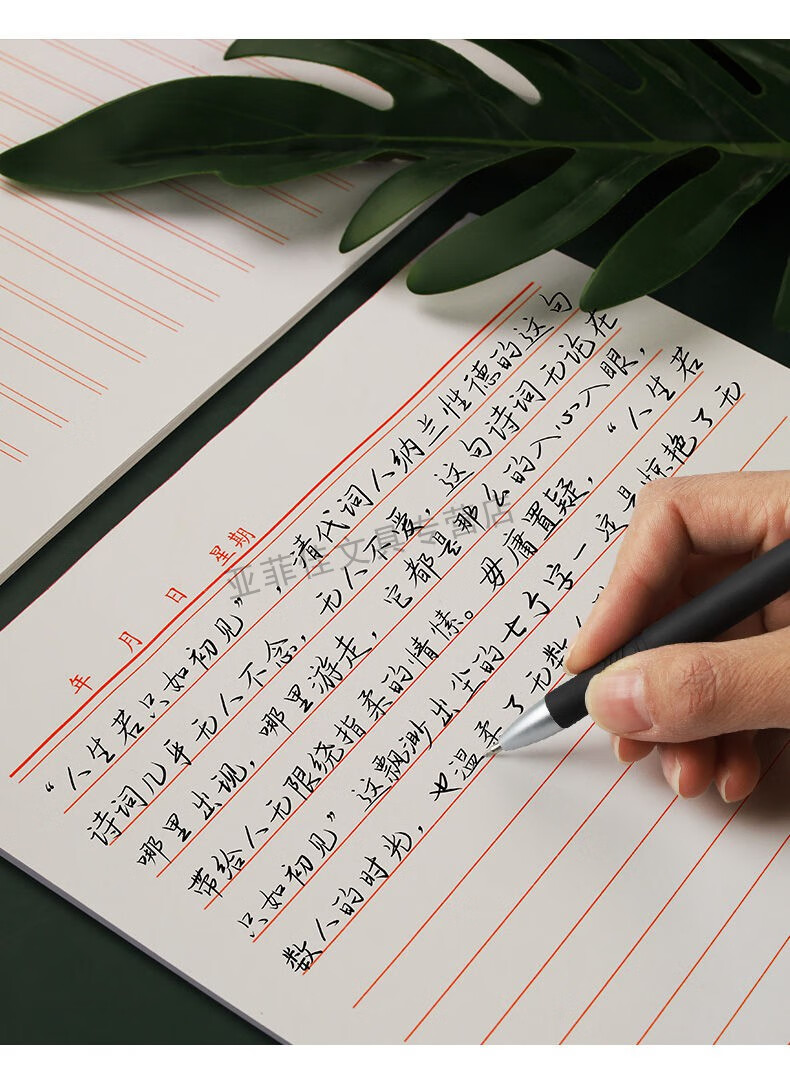 年 月 日 星期
“人生若只如初见”，清代词人纳兰性德的这句
诗词几乎无人不念，无人不爱，这句诗词无论在
哪里出现，哪里游走，它都是那么的入心入眼，
带给人无限绕指柔的情愫。毋庸置疑，“人生若
只如初见”这飘渺出尘的七个字一定是惊艳了无
数人的时光，也温柔了无数人
亚菲佳文具专营店